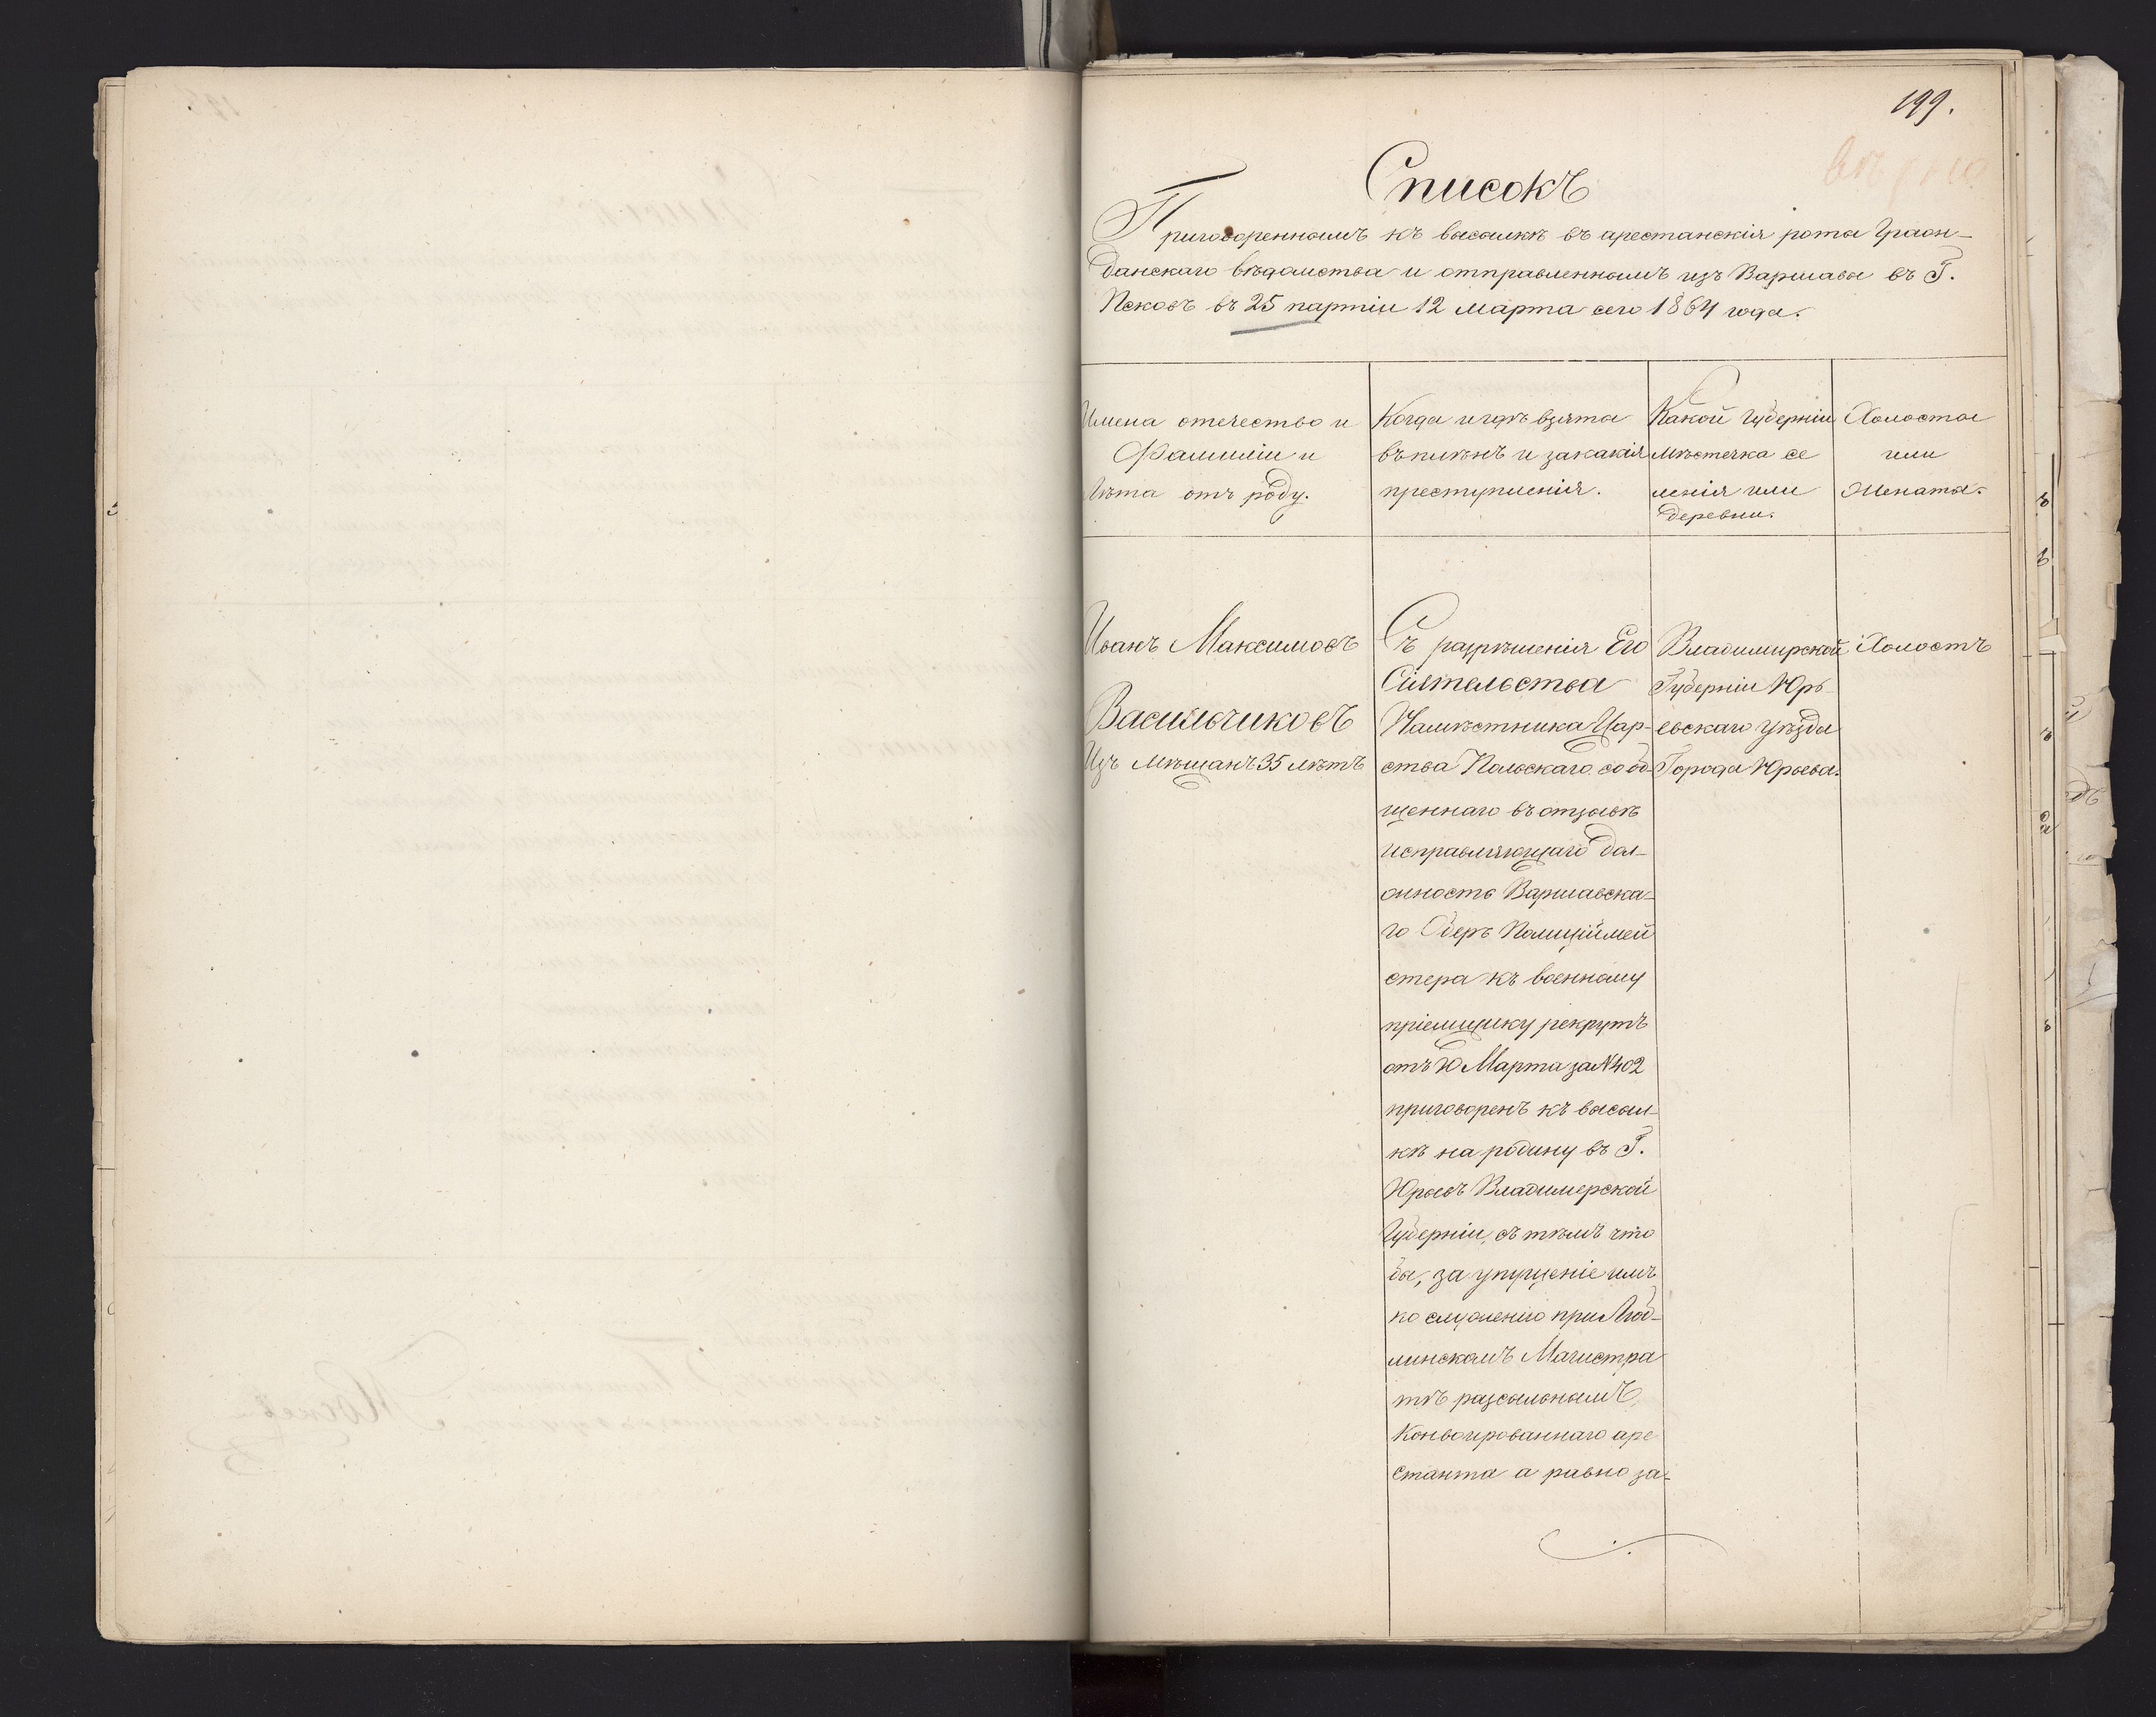 199.
Списокъ
Приговореннымъ къ высылкѣ въ арестанскія роты Граж-
данскаго вѣдомства и отправленнымъ изъ Варшавы въ Г.
Псковъ въ 25 партіи 12 марта сего 1864 года.
Имена отечество и
Фамиліи и
Лѣта отъ роду.
Когда и гдѣ взяты
въ плѣнъ и за какія
преступленія.
Какой Губерніи
мѣстечка се
ленія или
деревни.
Холосты
или
женаты.
Иванъ Максимовъ
Васильчиковъ
Изъ мѣщанъ 35 лѣтъ
Съ разрѣшенія Его
Сіятельства
Намѣстника Цар-
ства Польскаго сооб-
щеннаго въ отзывѣ
исправляющаго дол-
жность Варшавска-
го Оберъ Полиціймей
стера къ военному
пріемщику рекрутъ
отъ 10 Марта за №402
приговоренъ къ высыл-
кѣ на родину въ Г.
Юрьевъ Владимерской
Губерніи, съ тѣмъ что
бы, за упущеніе имъ
по служенію при Люб-
линскомъ Магистра
тѣ разсыльнымъ,
Конвоированнаго аре
станта а равно за-
Владимирской
Губерніи Юрь-
евскаго уѣзда
Города Юрьева.
Холостъ